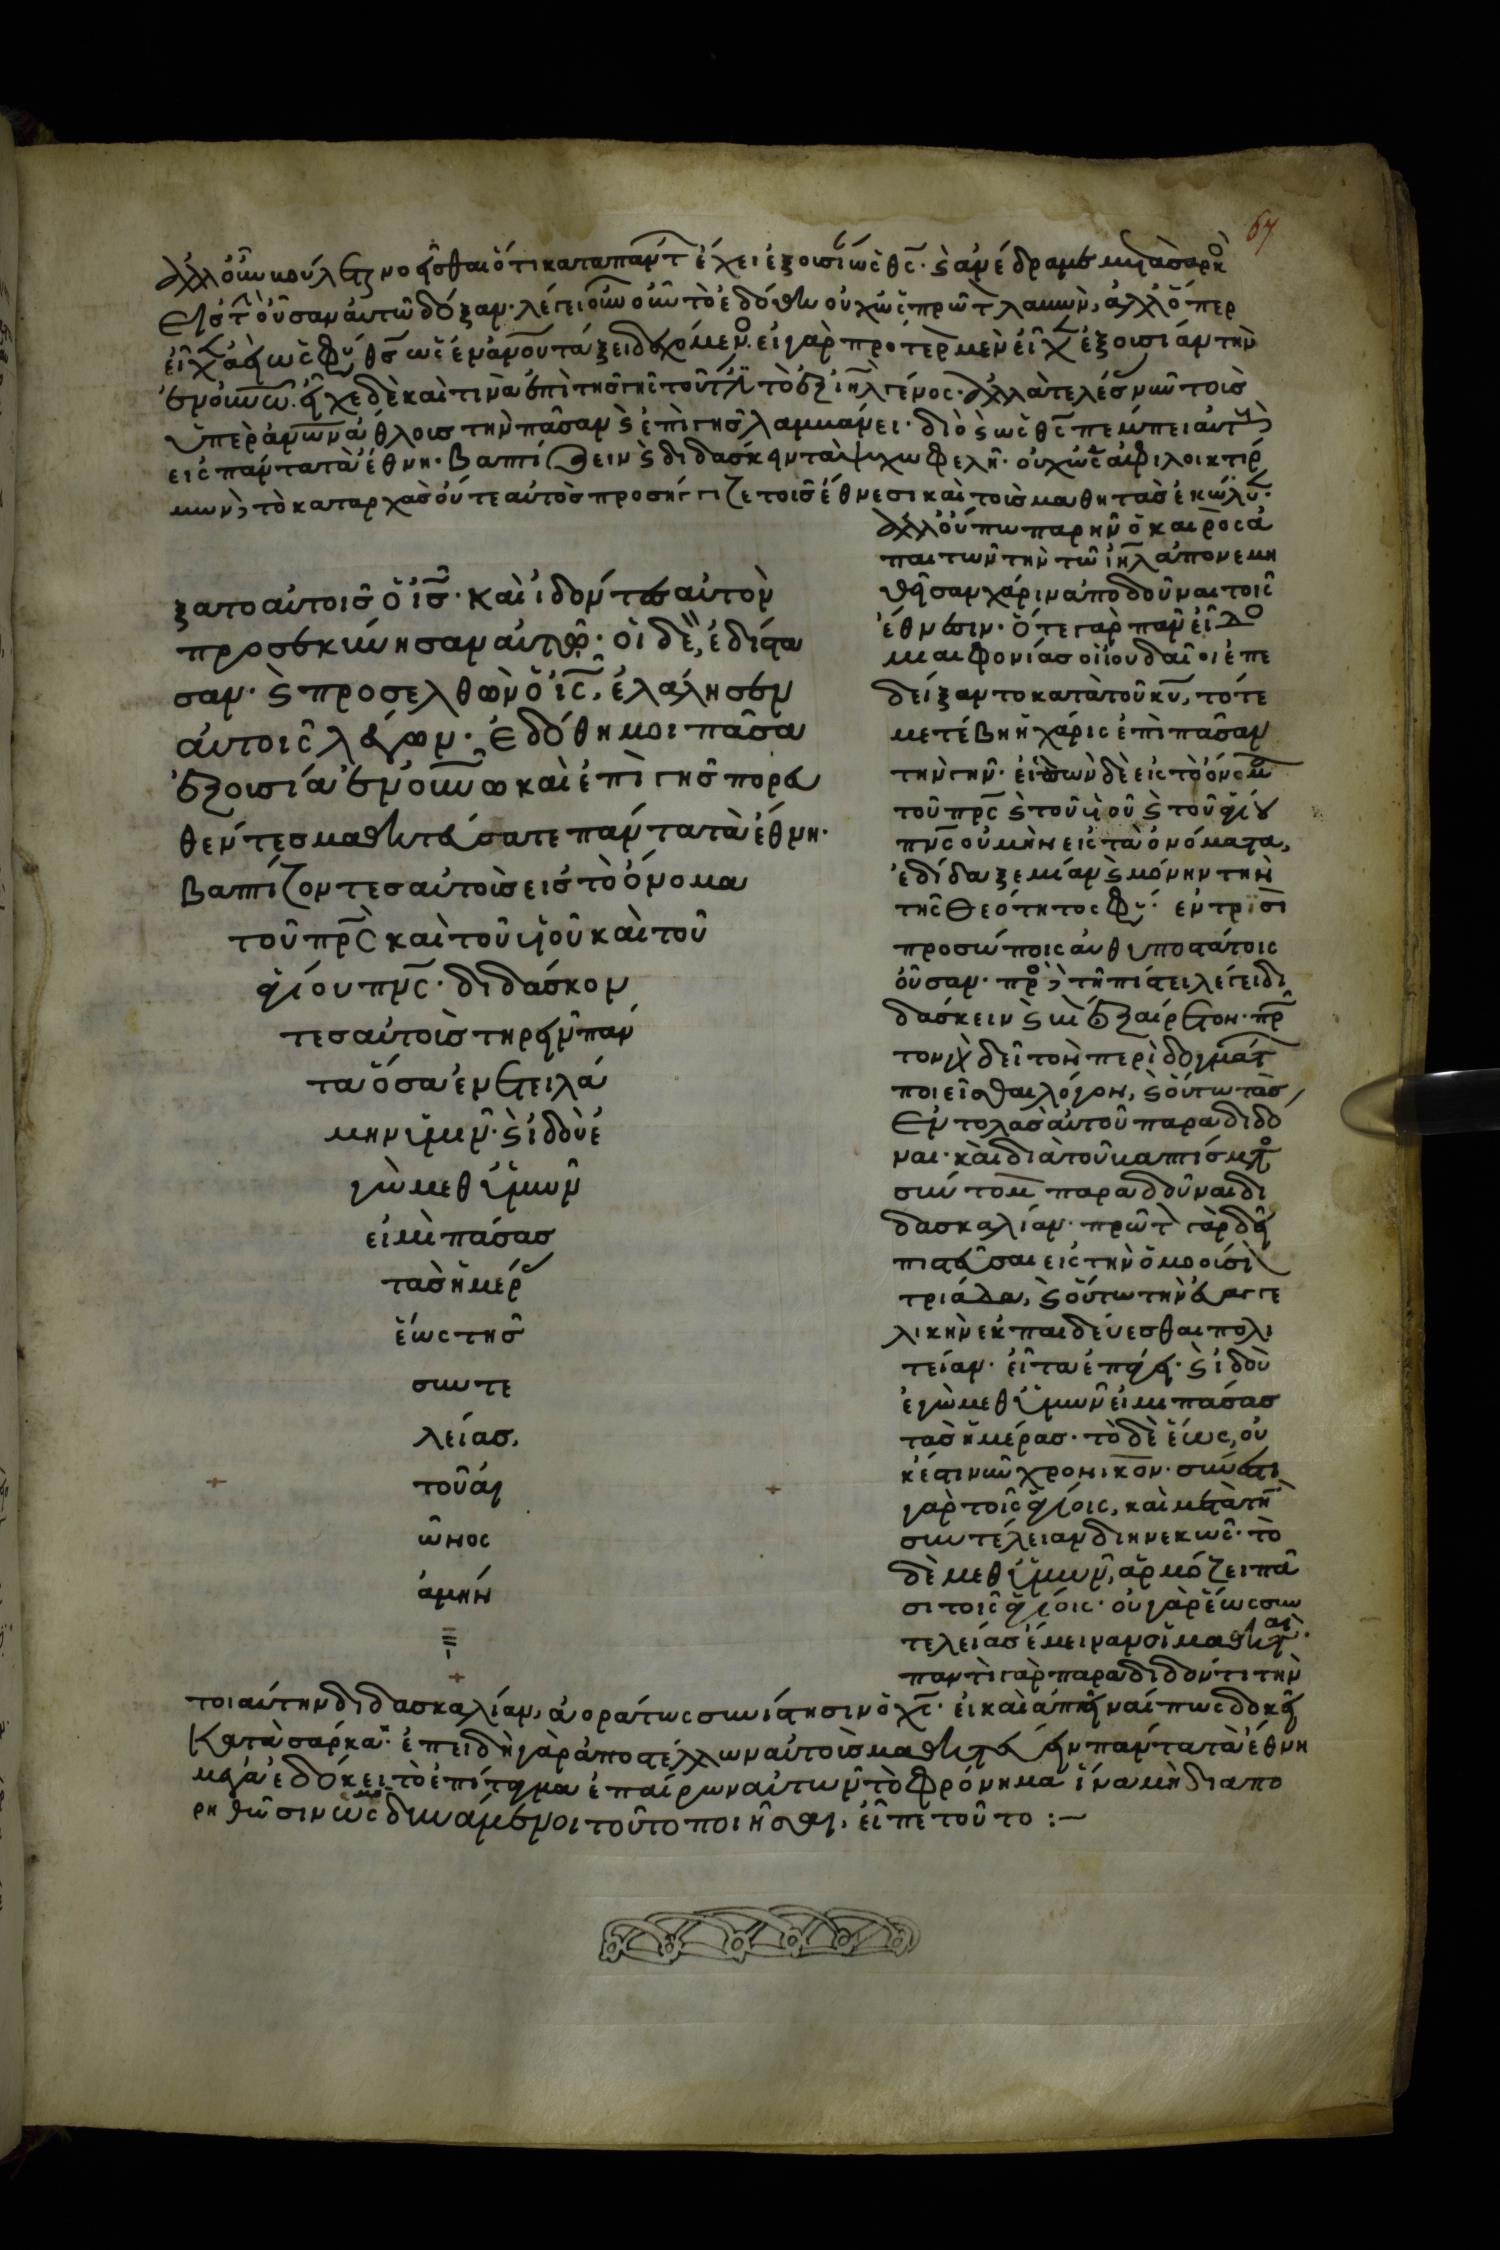 67
ἀλλ' οὖν βούλεται νοεῖσθαι ὅτι κατὰ πάντ ἔχει ἐξουσίαν ὡς θς· καὶ ἀνέδραμε μετὰ σαρκὸ
εἰς τὴν οὖσαν αὐτῶ δόξαν· λέγει οὖν τὸ ἐδόθη οὐχ ὡς πρῶτ λαβὼν, ἀλλ' ὅπερ
εἶχ ἀεὶ ὡς φύ θς ὡς ἐν ἀνου τάξει δεχόμενο. εἰ γὰρ πρότερ μὲν εἶχ ἐξουσίαν τὴν
ἐν οὐνῶ. εἶχε δὲ καί τινα ἐπὶ τῆς γῆς τουτέ τὸ ἐξ ιηλ γένος· ἀλλὰ τελέσ νῦν τοῖς
ὑπὲρ ἀνων ἄθλοις τὴν πᾶσαν καὶ ἐπὶ γῆς λαμβάνει· διὸ καὶ ὡς θς πέμπει αὐτοὺς
εἰς πάντα τὰ ἔθνη· βαπτίζειν καὶ διδάσκειν τὰ ψυχωφελῆ· οὐχ ὡς ἀφιλοικτίρ
μων δὲ τὸ καταρχὰς οὔτε αὐτὸς προσήγγιζε τοῖς ἔθνεσι καὶ τοὺς μαθητὰς ἐκώλυ·
ξατο αὐτοῖς ὁ ις· καὶ ἰδόντες αὐτὸν
προσεκύνησαν αὐτῶ· οἱ δὲ, ἐδίστα
σαν· καὶ προσελθὼν ὁ ις, ἐλάλησεν
αὐτοῖς λέγων· ἐδόθη μοι πᾶσα
ἐξουσία ἐν οὐνω καὶ ἐπὶ γῆς πορευ
θέντες μαθητεύσατε πάντα τὰ ἔθνη·
βαπτίζοντες αὐτοὺς εἰς τὸ ὄνομα
τοῦ πρς καὶ τοῦ υἱοῦ καὶ τοῦ
ἁγίου πνς· διδάσκον
τες αὐτοὺς τηρεῖν πάν
τα ὅσα ἐνετειλά
μην ὑμῖν· καὶ ἰδοὺ ἐ
γὼ μεθ' ὑμῶν
εἰμὶ πάσας
τὰς ἡμέρ
ἕως τῆς
συντε
λείας,
τοῦ αἰ
ῶνος
ἀμήν
ἀλλ' οὔπω παρῆν ὁ καιρὸς ἀ
παιτῶν τὴν τῶ ιηλ ἀπονεμη
θεῖσαν χάριν ἀποδοῦναι τοῖς
ἔθνεσιν· ὅτε γὰρ πᾶν εἶδο
μιαιφονίας οἱ ἰουδαῖοι ἐπε
δείξαντο κατὰ τοῦ κυ, τότε
μετέβη ἡ χάρις ἐπὶ πᾶσαν
τὴν γῆν· εἰπὼν δὲ εἰς τὸ ὄνομα
τοῦ πρς καὶ τοῦ υἱοῦ καὶ τοῦ ἁγίου
πνς οὐ μὴν εἰς τὰ ὀνόματα,
ἐδίδαξε μίαν καὶ μόνην τὴν
τῆς θεότητος φύ· ἐν τρισὶ
προσώποις ἀνθυποστάτοις
οὖσαν· πρὸς δὲ τῆ πίστει λέγει δι
δάσκειν καὶ ἐξαίρετον· πρ
τον χ δεῖ τὸν περὶ δογμάτ
ποιεῖσθαι λόγον, καὶ οὕτω τὰς
ἐντολὰς αὐτοῦ παραδιδό
ναι· καὶ διὰ τοῦ βαπτίσματ
σύντομ παραδοῦναι δι
δασκαλίαν· πρῶτ γὰρ δεῖ
πιστεῦσαι εἰς τὴν ὁμοούσι
τριάδα, καὶ οὕτω τὴν εὐαγγε
λικὴν ἐκπαιδεύεσθαι πολι
τείαν· εἶτα ἐπάγει· καὶ ἰδοὺ
ἐγὼ μεθ' ὑμῶν εἰμι πάσας
τὰς ἡμέρας· τὸ δὲ ἕως, οὐ
κ ἔστι νῦν χρονικὸν· σύνεστι
γὰρ τοῖς ἁγίοις, καὶ μετὰ τὴν
συντέλειαν διηνεκῶς· τὸ
δὲ μεθ' ὑμῶν, ἁρμόζει πᾶ
σι τοῖς ἁγίοις· οὐ γὰρ ἕως συν
τελείας ἔμειναν οἱ μαθηταὶ·
παντὶ γὰρ παραδιδόντι τὴν
τοιαύτην διδασκαλίαν, ἀοράτως συνίστησιν ὁ χς· εἰ καὶ ἀπεῖναί πως δοκεῖ
κατὰ σάρκα· ἐπειδὴ γὰρ ἀποστέλλων αὐτοὺς μαθητεύειν πάντα τὰ ἔθνη
μέγα ἐδόκει τὸ ἐπίταγμα ἐπαίρων αὐτῶν τὸ φρόνημα ἵνα μὴ διαπο
ρηθῶσιν ὡς μὴ δυνάμενοι τοῦτο ποιῆσαι, εἶπε τοῦτο :—